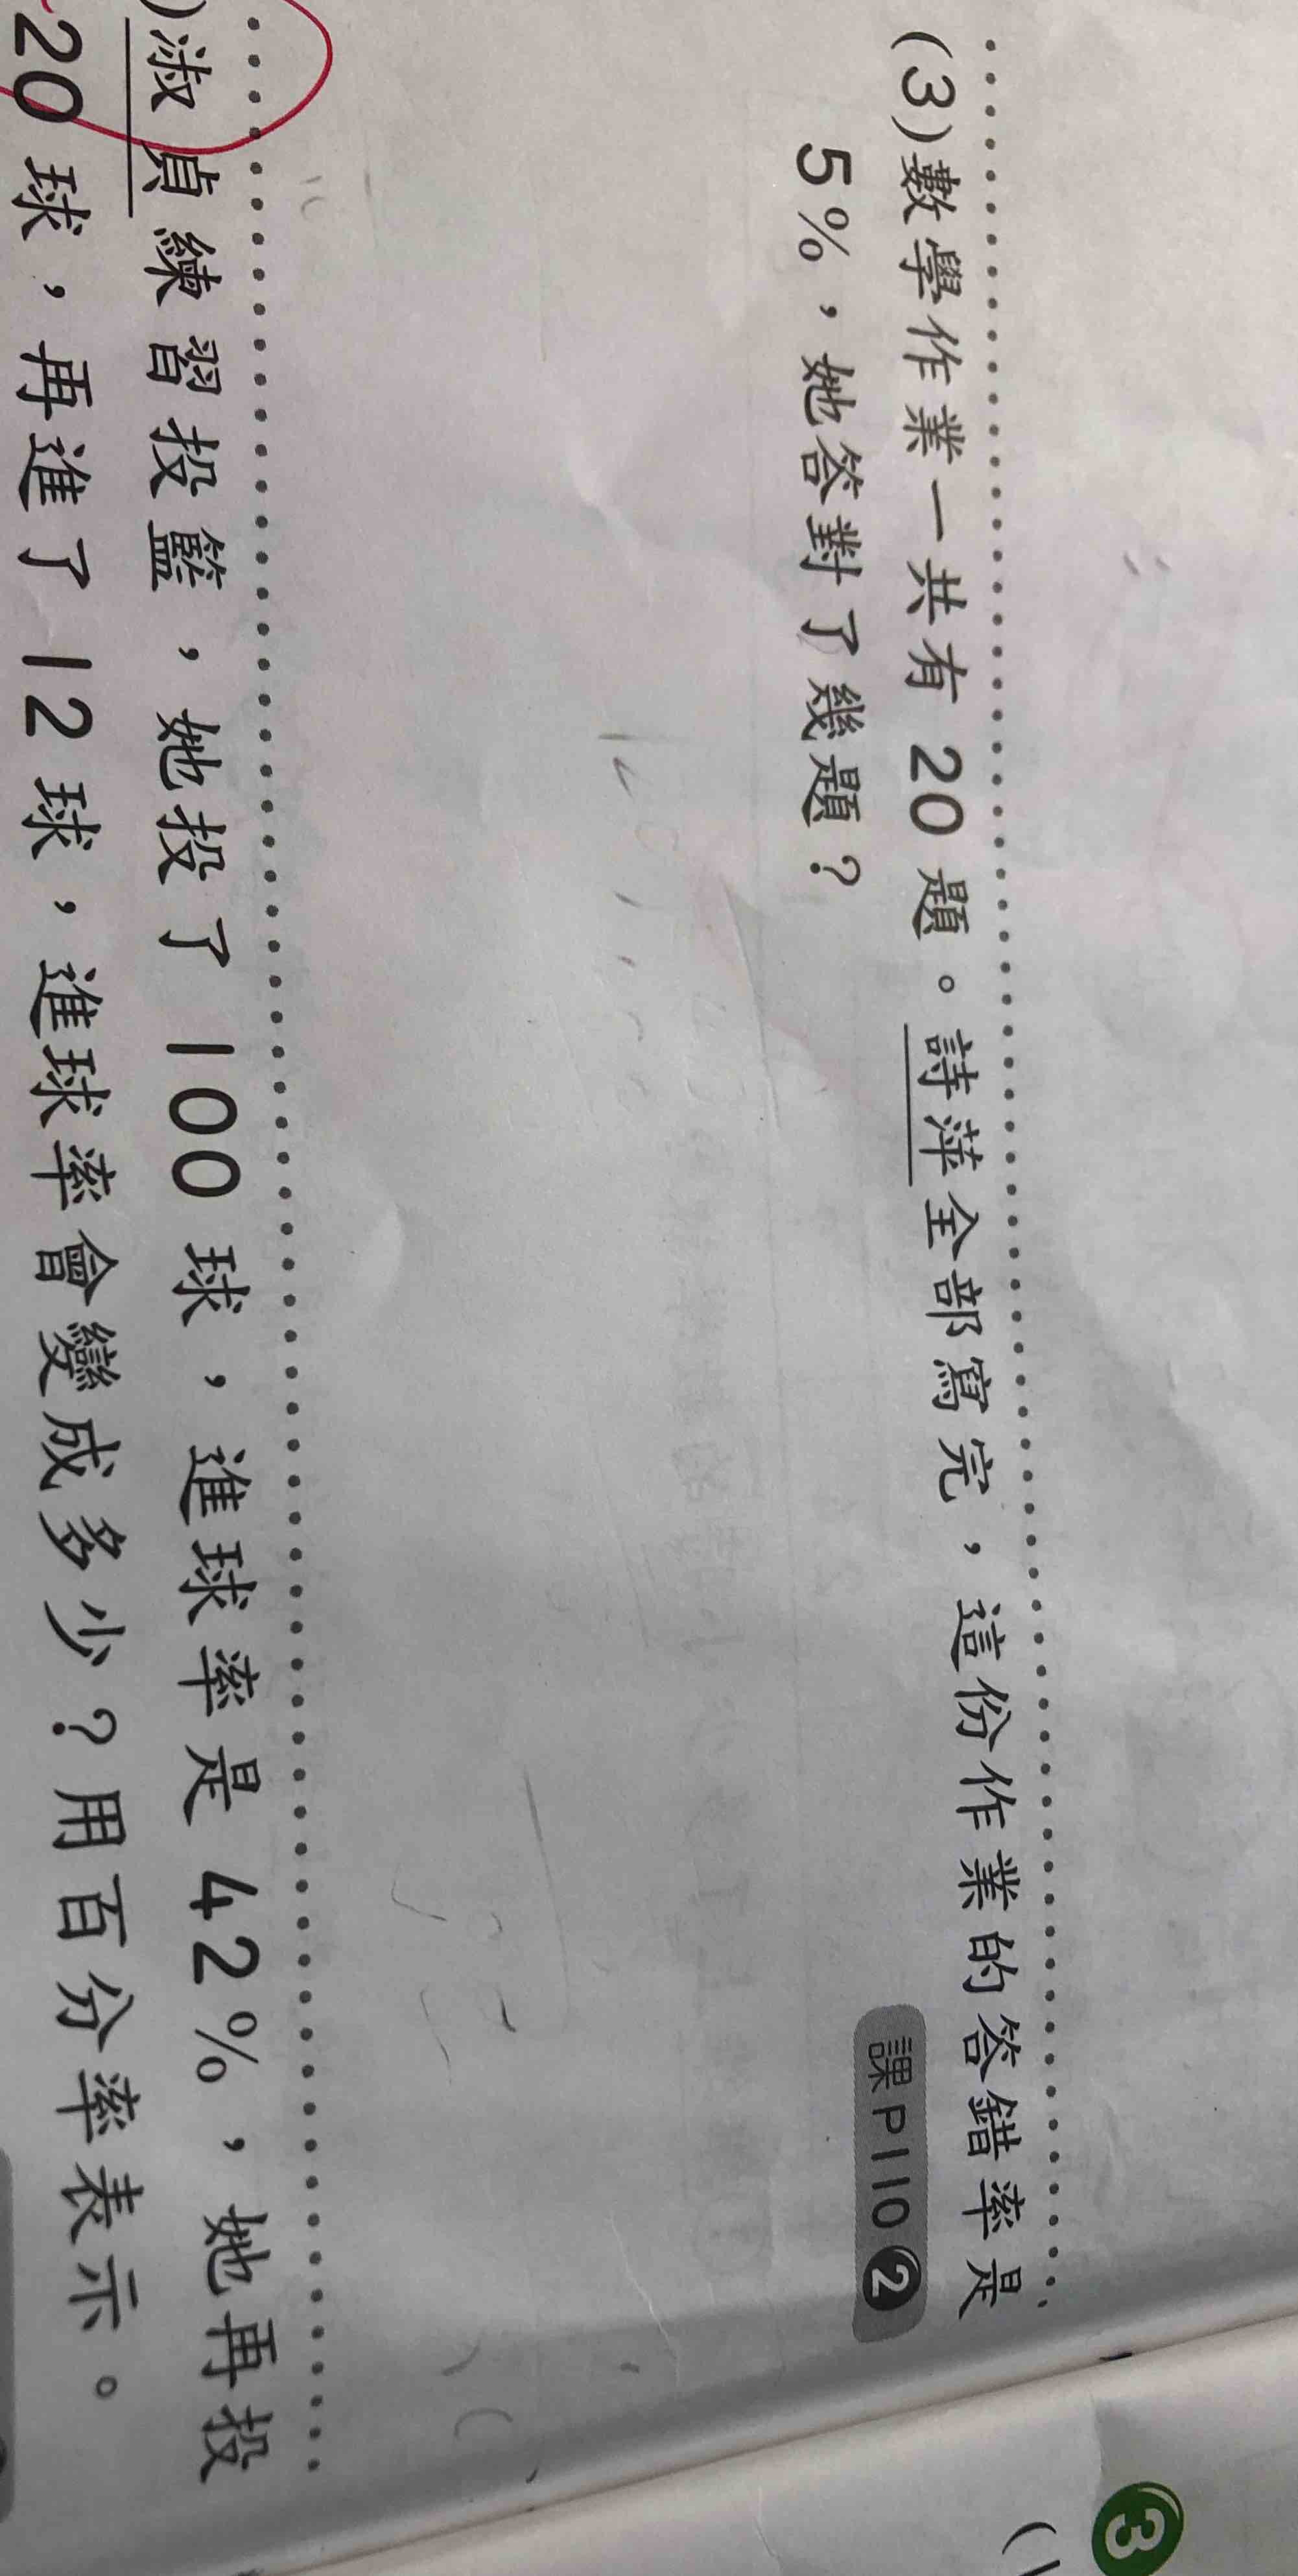 (3)數學作業一共有20題。詩萍全部寫完，這份作業的答錯率是
5%，她答對了幾題？
課P110 2
)淑貞練習投籃，她投了100球，進球率是42%，她再投
20球，再進了12球，進球率會變成多少？用百分率表示。
3
(1